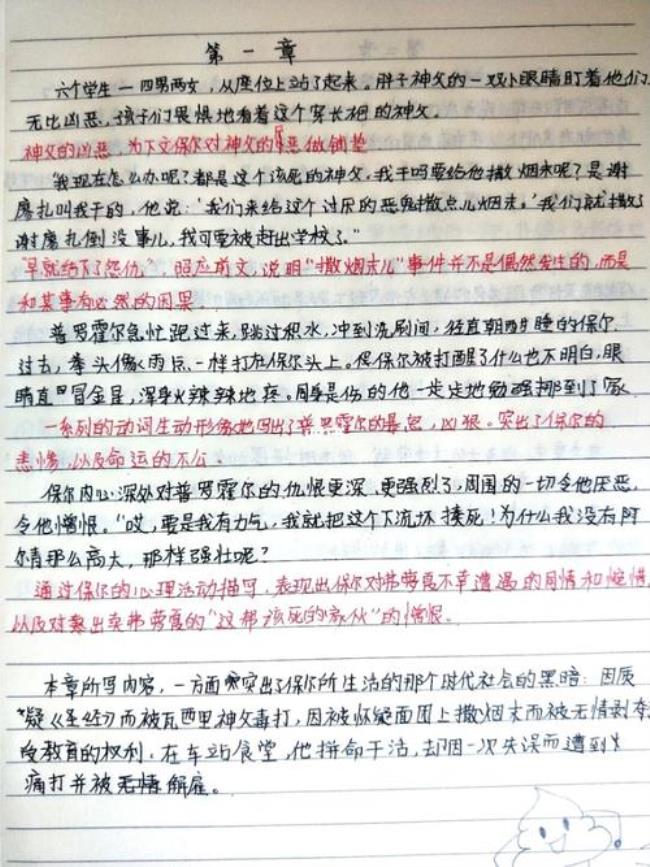 第一章
六个学生——四男两女，从座位上站了起来。胖子神父的一双小眼睛盯着他们，
无比凶恶，孩子们畏惧地看着这个穿长袍的神父。
神父的凶恶，为下文保尔对神父的恶做铺垫
"我现在怎么办呢？都是这个该死的神父。我干吗要给他撒烟末呢？是谢
廖扎叫我干的，他说：'我们来给这个讨厌的恶鬼撒点儿烟末。'我们就撒了
谢廖扎倒没事儿，我可要被赶出学校了。"
"早就结下了怨仇"，照应前文，说明"撒烟末儿"事件并不是偶然发生的，而是
和某事有必然的因果
普罗霍尔急忙跑过来，踏过积水，冲到洗刷间，径直朝酣睡的保尔
过去，拳头像雨点一样打在保尔头上。保尔被打醒了什么也不明白，眼
睛直冒金星，浑身火辣辣地疼。周身是伤的他一步步地勉强挪到了家
一系列的动词生动形象地写出了普罗霍尔的暴怒，凶狠。突出了保尔的
悲惨以及命运的不公。
保尔内心深处对普罗霍尔的仇恨更深、更强烈了，周围的一切令他厌恶，
令他憎恨。"哎，要是我有力气，我就把这个下流坏揍死！为什么我没有阿
尔青那么高大，那样强壮呢？
通过保尔的心理活动描写，表现出保尔对弗萝霞不幸遭遇的同情和惋惜，
以及对出卖弗萝霞的"这帮该死的家伙"的憎恨。
本章所写内容，一方面突出了保尔所生活的那个时代社会的黑暗：因质
疑《圣经》而被瓦西里神父毒打，因被怀疑面团上撒烟末而被无情剥夺
受教育的权利。在车站食堂，他拼命干活，却因一次失误而遭到
痛打并被无情解雇。